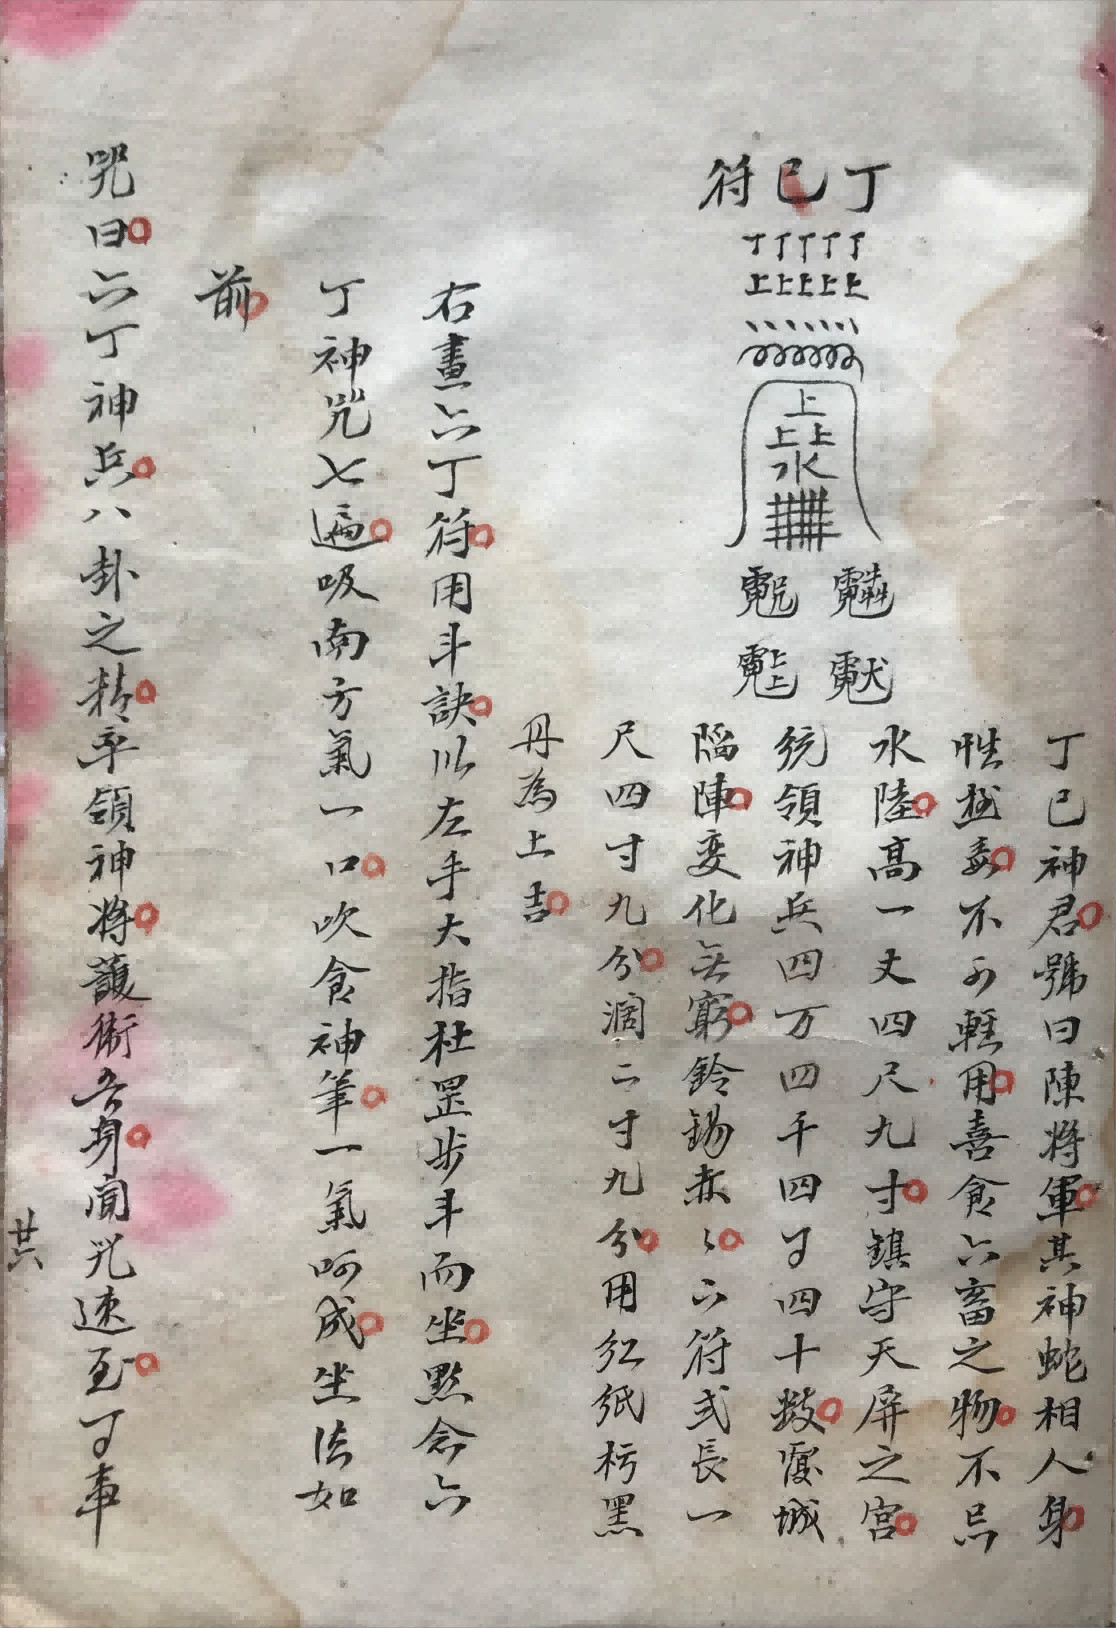 丁巳符
丁丁丁丁丁
上上上上上
上
上上
水
丁巳神君號曰陳將軍其神蛇相人身
性極毒不可輕用喜食六畜之物不忌
水陸高一丈四尺九寸鎮守天屏之宮
統領神兵四万四千四百四十數覆城
陷陣变化无窮鈴錫赤〻六符式長一
尺四寸九分濶二寸九分用紅紙朽黑
丹為上吉
右畫六丁符用斗訣以左手大指杜罡步斗而坐默念六
丁神咒七遍吸南方氣一口吹食神筆一氣呵成坐法如
前
咒曰六丁神兵八卦之精率領神將護衛吾身聞咒速至丁事
廿六